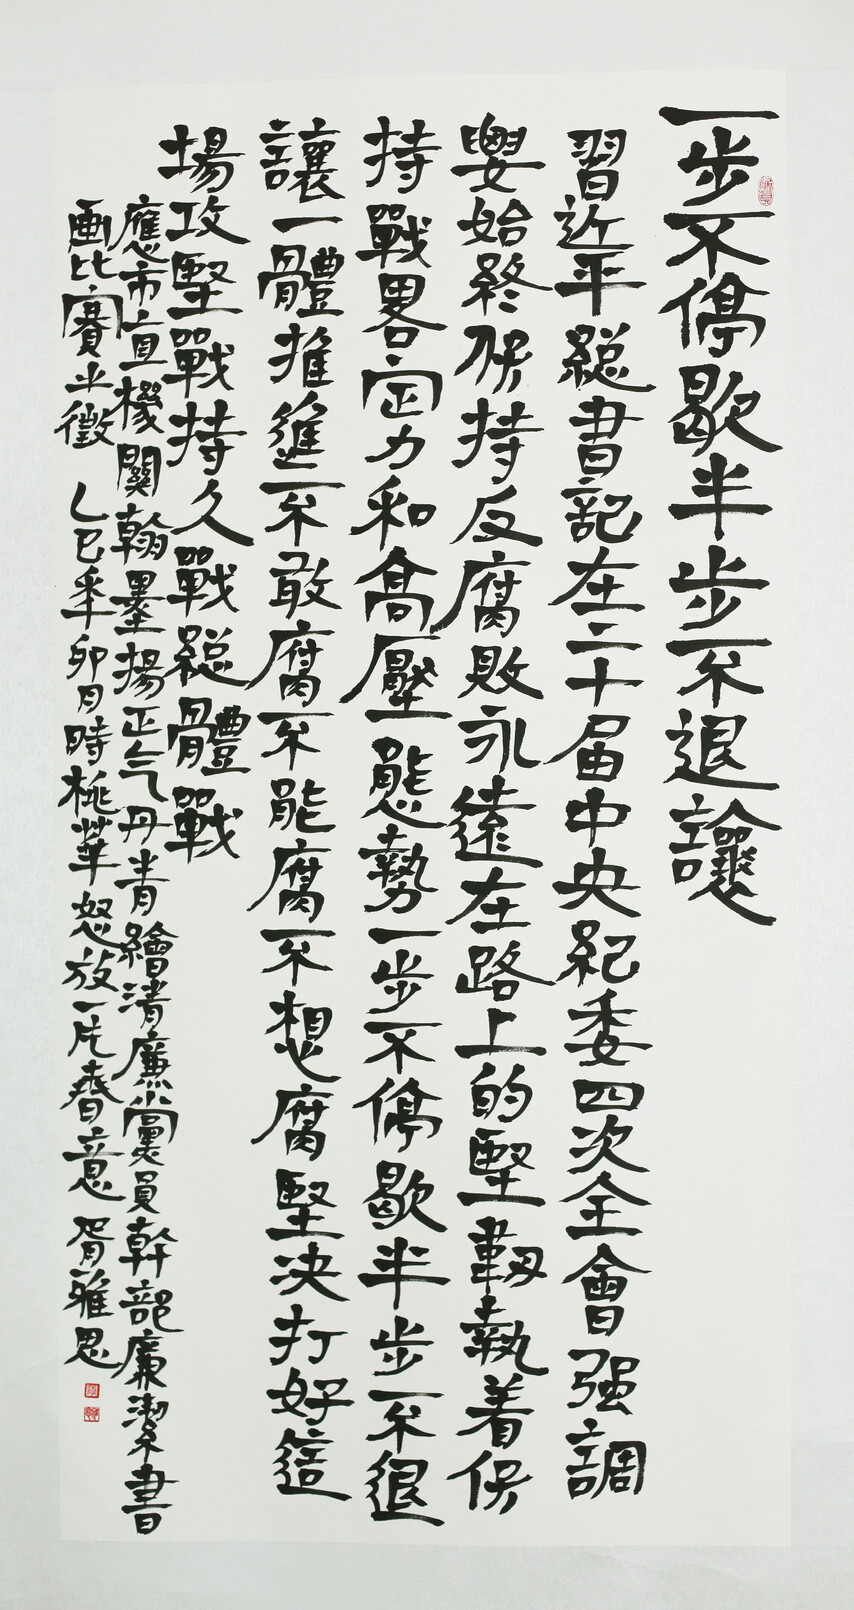 一步不停歇半步不退讓
習近平總書記在二十届中央紀委四次全會强調
要始終保持反腐敗永遠在路上的堅韌執着保
持戰畧定力和高壓態勢一步不停歇半步不退
讓一體推進不敢腐不能腐不想腐堅决打好這
場攻堅戰持久戰總體戰
應市直機關翰墨揚正气丹青繪清廉黨員幹部廉潔書
画比賽之徵 乙巳年卯月時桃華怒放一片春意 胥雅思